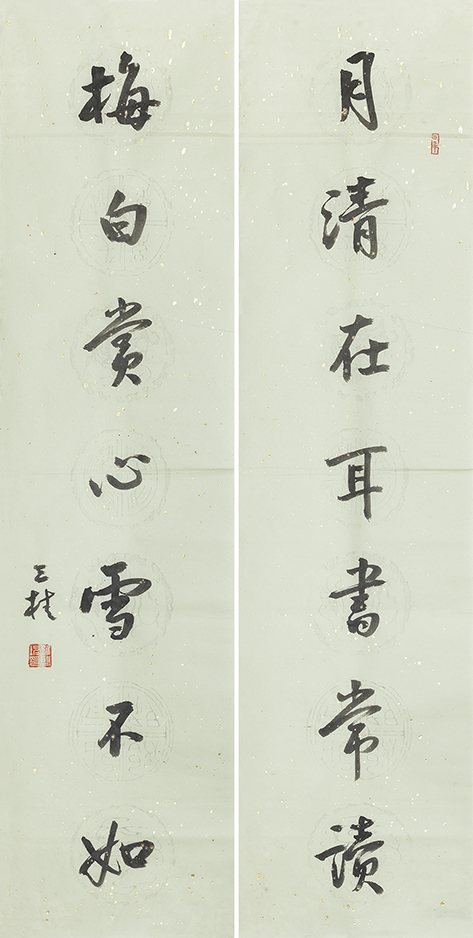 月清在耳書常讀
梅白賞心雪不如
三桂